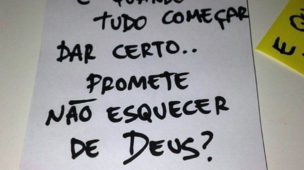 E QUANDO
TUDO COMEÇAR
DAR CERTO..
PROMETE
NÃO ESQUECER
DE DEUS?
E